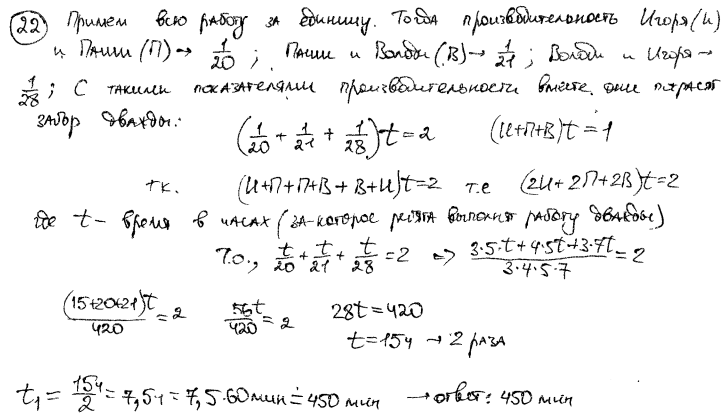 22 Примем всю работу за единицу. Тогда производительность Игоря(И)
и Паши (П) → 1/20 ; Паши и Володи (В) → 1/21 ; Володи и Игоря →
1/28 ; С такими показателями производительности вместе они покрасят
забор дважды: (1/20 + 1/21 + 1/28)t = 2 (И+П+В)t = 1
т.к. (И+П+П+В+В+И)t=2 т.е (2И+2П+2В)t=2
где t – время в часах (за которое ребята выполнят работу дважды)
Т.о., t/20 + t/21 + t/28 = 2 => (3·5·t+4·5t+3·7t)/(3·4·5·7) = 2
((15+20+21)t)/420 = 2 56t/420 = 2 28t=420
t=15ч → 2 раза
t₁ = 15ч/2 = 7,5ч = 7,5·60мин = 450 мин → ответ: 450 мин